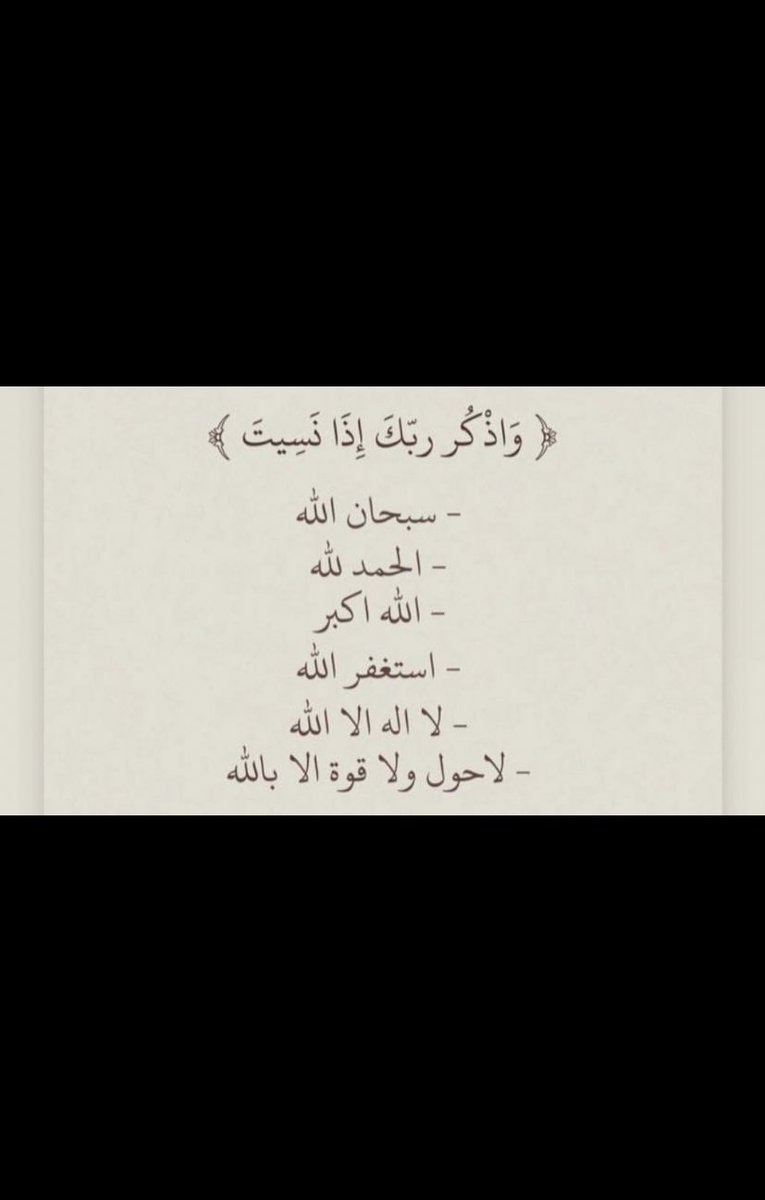 ﴿ وَاذْكُر ربّكَ إِذَا نَسِيتَ ﴾
- سبحان الله
- الحمد لله
- الله اكبر
- استغفر الله
- لا اله الا الله
- لاحول ولا قوة الا بالله